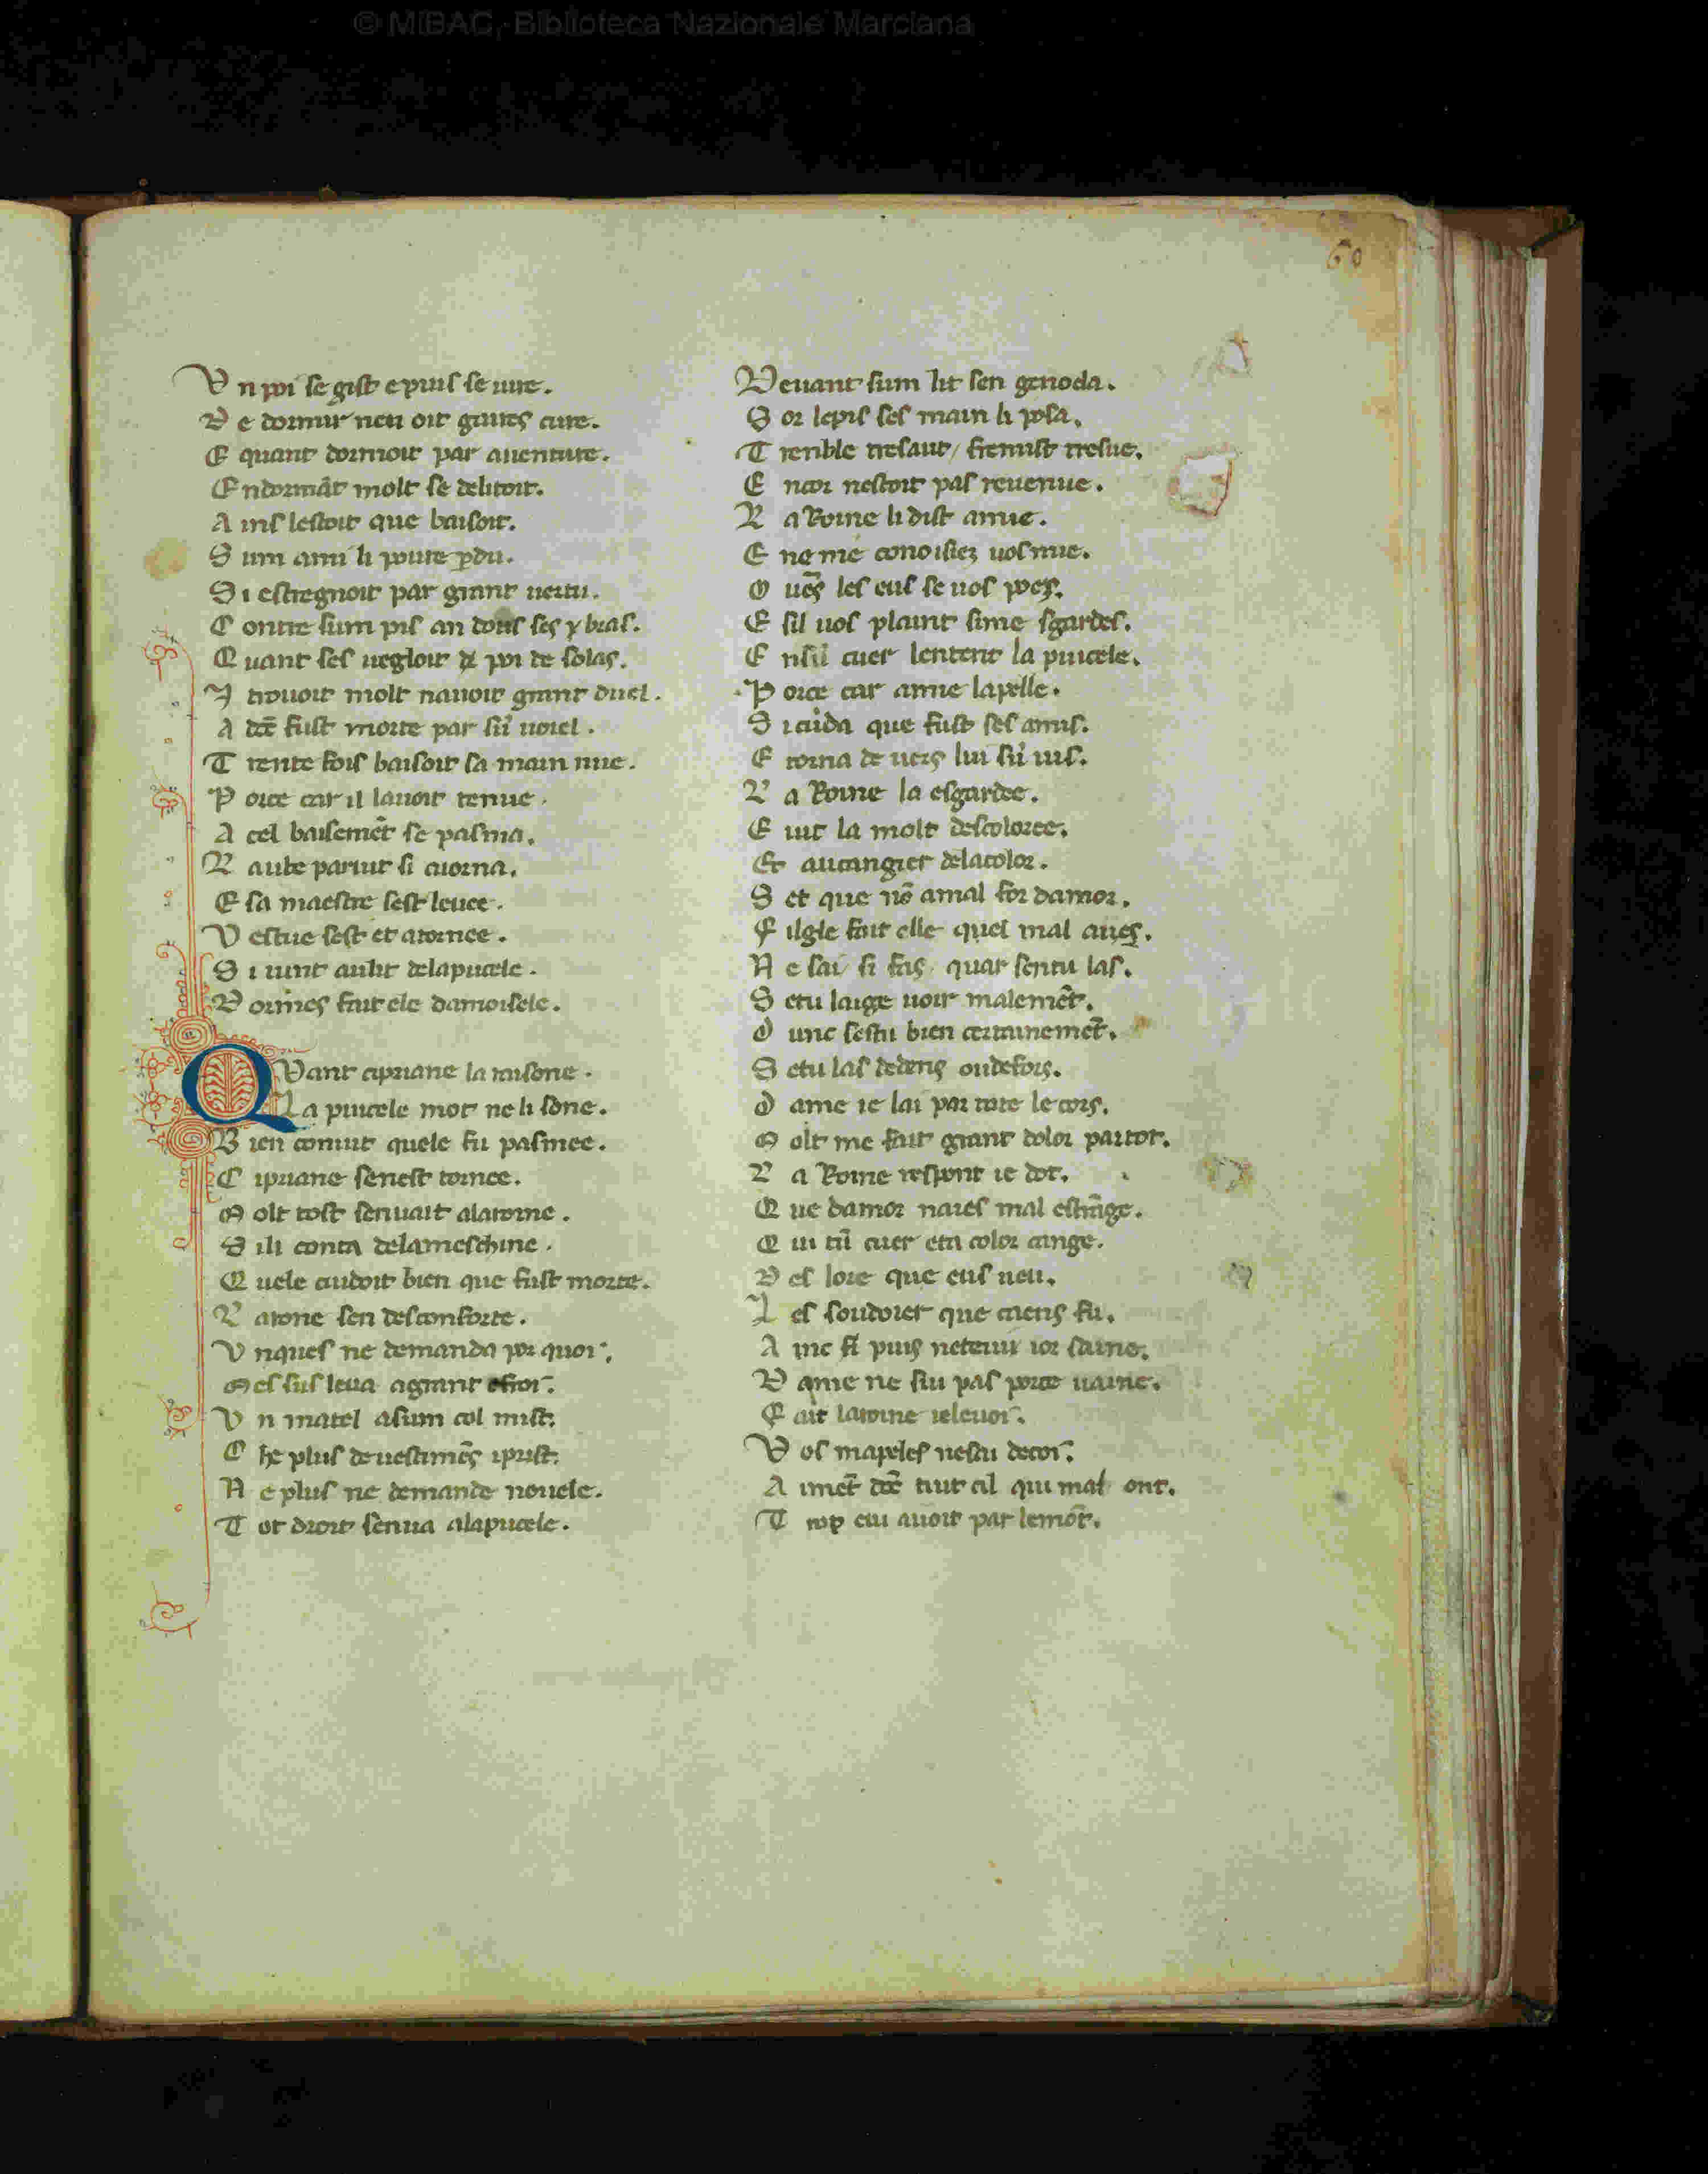 © MiBAC, Biblioteca Nazionale Marciana
60
V n poi se gist e puis se uire.
D e dormir neu oit graires cure.
E quant dormoit par auenture.
E ndormāt molt se delitoit.
A mis lestoit que baisoit.
S um ami li poure ꝑdu.
Si estregnoit par grant uertu.
C ontre sum pis an dous ses y bras.
Q uant ses uegloit poi de solas.
I trouoit molt nauoit grant duel.
A dōc fust morte par sū uoiel.
T rente fois baisoit sa main nue.
P orce car il lauoit tenue.
A cel baisemēt se pasma.
L aube paruit li aiorna.
E sa maestre sest leuee.
V estue sest et atornee.
S i uint aulit delapucele.
D ormes fait ele damoisele.
Q Vant cipriane la raisone.
La puicele mot ne li sone.
B ien conuit quele fu pasmee.
C ipriane senest tornee.
M olt tost senuait alaroine.
S ili conta delameschine.
Q uele cuidoit bien que fust morte.
L aroine sen desconforte.
V nques ne demanda por quoi.
M es sus leua agrant efroi.
V n matel asum col mist.
C he plus deuestimēs iprist.
N e plus ne demande nouele.
T ot droit senua alapucele.
Deuant sum lit sen genoda.
S or lepis ses main li posa.
T renble tresaut / fremist tresue.
E ncor nestoit pas reuenue.
L a Roine li dist amie.
E ne me conoistez uos mie.
O uēs les eus se uos poes.
E sil uos plaint sime sgardes.
E nsū cuer lentent la puicele.
P orce car amie lapelle.
S icuida que fust ses amis.
E torna de uers lui sū uis.
L a Roine la esgardee.
E uit la molt descoloree.
Et aucangier delacolor.
S et que nō amal for damor.
F ilgle fait elle quel mal aues.
N e sai / si fas / quar sentu las.
S etu laige uoir malemēt.
D unc sestu bien certainemēt.
S etu las dedens oudefors.
D ame ie lai par tote le cors.
M olt me fait grant dolor partot.
L a Roine respont ie dot.
Q ue damor naies mal estrāge.
Q ui tū cuer eta color cange.
D es lore que eus neu.
L es soudoier que caens fu.
A inc fī puis neteui ior saine.
D ame ne siu pas porce uaine.
F ait laroine ieleuoi.
V os mapeles nestu decoi.
A imēt dōc tuit cil qui mal ont.
T rop eiu auoit par lemōt.